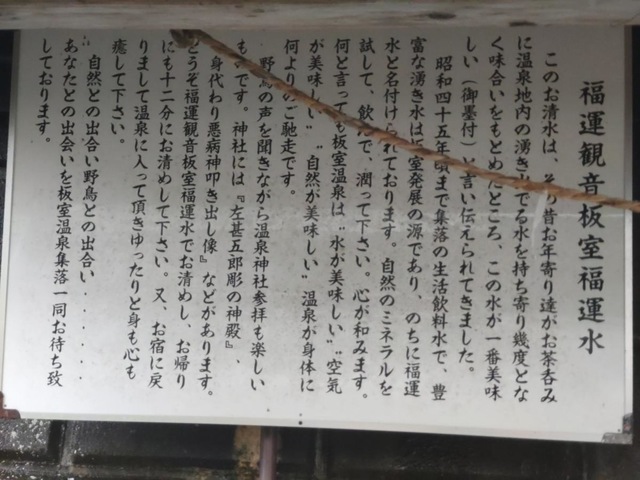 福運観音板室福運水
このお清水は、その昔お年寄り達がお茶呑み
に温泉地内の湧きでる水を持ち寄り幾度とな
く味合いをもとめたところ、この水が一番美味
しい（御墨付）と言い伝えられてきました。
昭和四十五年頃まで集落の生活飲料水で、豊
富な湧き水は板室発展の源であり、のちに福運
水と名付けられております。自然のミネラルを
試して、飲んで、潤って下さい。心が和みます。
何と言っても板室温泉は〝水が美味しい〟〝空気
が美味しい〟〝自然が美味しい〟温泉が身体に
何よりのご馳走です。
野鳥の声を聞きながら温泉神社参拝も楽しい
ものです。神社には『左甚五郎彫の神殿』
『身代わり悪病神叩き出し像』などがあります。
どうぞ福運観音板室福運水でお清めし、お帰り
にも十二分にお清めして下さい。又、お宿に戻
りまして温泉に入って頂きゆったりと身も心も
癒して下さい。
〝自然との出合い野鳥との出合い・・・・・・
あなたとの出会いを板室温泉集落一同お待ち致
しております。